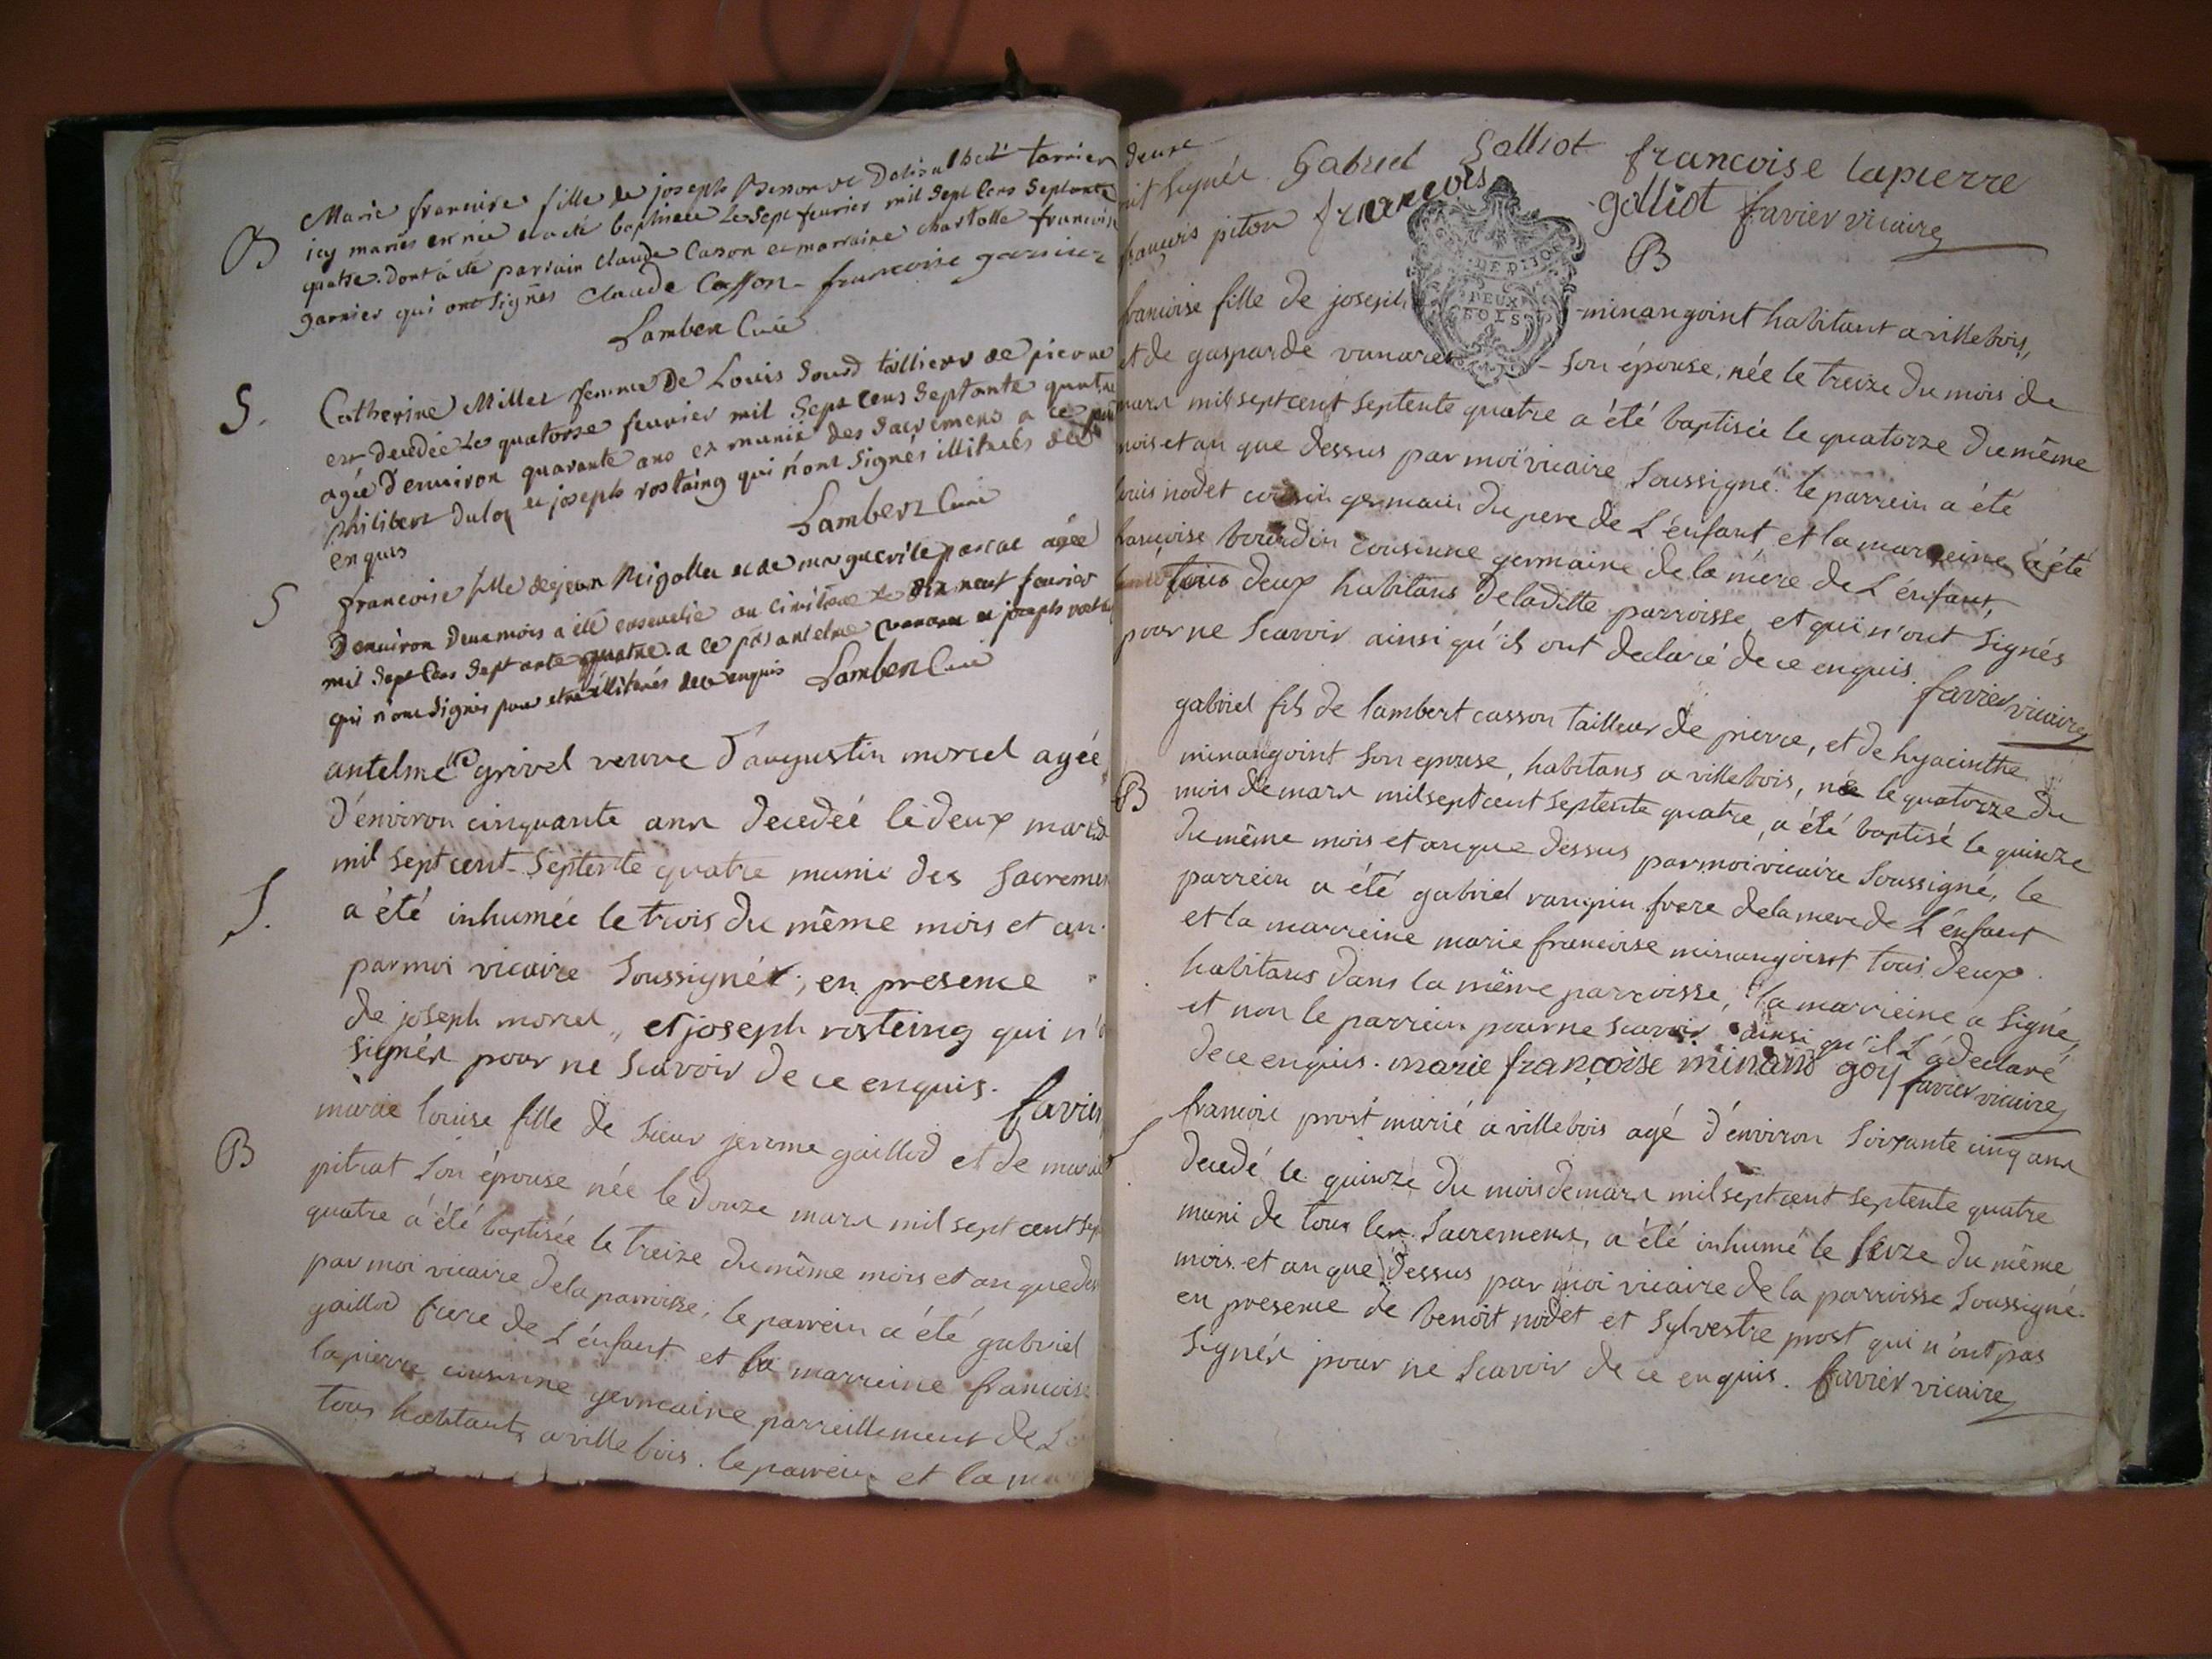 B
Marie francoise fille de joseph et tarnier
icy mariés est née et a été baptisée le Sept feurier mil Sept Cens Septante
quatre. Dont à été parrain Claude Cason et marraine charlotte francoise
garnier qui ont signés Claude Casson francoise garnier
Lambert Curé
S.
Catherine Millet femme De Louis Sourd tallieur de pierre
est decedée Le quatorse feurier mil Sept Cens Septante quatre
agée d'enuiron quarante ans et munie des Sacremens a ce
philibert Duloz et joseph rostaing qui n'ont Signés illiterés de ce
enquis Lambert Curé
S
francoise fille de jean et de marguerite pascal agée
D'enuiron Deux mois a été enseuelie au Cimitiere le dix neuf feurier
mil Sept Cens Septante quatre. a ce pñs antelme et joseph
qui n'ont Signés pour etre illiterés de ce enquis Lambert Curé
S.
antelme grivel veuve d'augustin morel agée
d'énviron cinquante ans decedéé le deux mars
mil sept cent septente quatre munie des Sacremen
a été inhumée le trois du même mois et an
par moi vicaire Soussigné, en presence
de joseph morel, et joseph rosteing qui n'
signés pour ne scavoir de ce enquis. favier
B
marie louise fille de Sieur jerome galliod et de
pitrat son épouse née le douze mars mil sept cent
quatre a été baptisée le treize du même mois et an que
par moi vicaire de la parroisse, le parrein a été gabriel
galliod frere de L'énfant et la marreine francoise
lapierre cousinne germaine parreillement de L
tous habitants a villebois. le parrein et la
deux
signés. Gabriel Galliot francoise lapierre
francois piton francois galliot favier vicaire
DE DIJON
DEUX SOLS
B
francoise fille de joseph minangoint habitant a villebois,
et de gasparde vanarel son épouse, née le treize du mois de
mars mil sept cent septente quatre a été baptisée le quatorze du même
mois et an que dessus par moi vicaire Soussigné. le parrein a été
louis nodet cousin germain du pere de L'énfant et la marreine a été
francoise bourdin cousinne germaine de la mére de L'énfant,
tous deux habitans de la ditte parroisse, et qui n'ont signés
pour ne scavoir ainsi qu'ils ont declaré de ce enquis. favier vicaire
B
gabriel fils de lambert casson tailleur de pierre, et de hyacinthe
minangoint son epouse, habitans a villebois, né le quatorze du
mois de mars mil sept cent septente quatre, a été baptisé le quinze
du même mois et an que dessus par moi vicaire Soussigné, le
parrein a été gabriel frere de la mere de L'énfant
et la marreine marie francoise minangoint tous deux
habitans dans la même parroisse, la marreine a signé,
et non le parrein pour ne scavoir ainsi qu'il L'a declaré
de ce enquis. marie françoise minan goy favier vicaire
S
francois prost marié a villebois agé d'énviron soixante cinq ans
decedé le quinze du mois de mars mil sept cent septente quatre
muni de tous les Sacremens, a été inhumé le seize du même
mois et an que dessus par moi vicaire de la parroisse Soussigné
en presence de benoit nodet et sylvestre prost qui n'ont pas
signés pour ne scavoir de ce enquis. favier vicaire